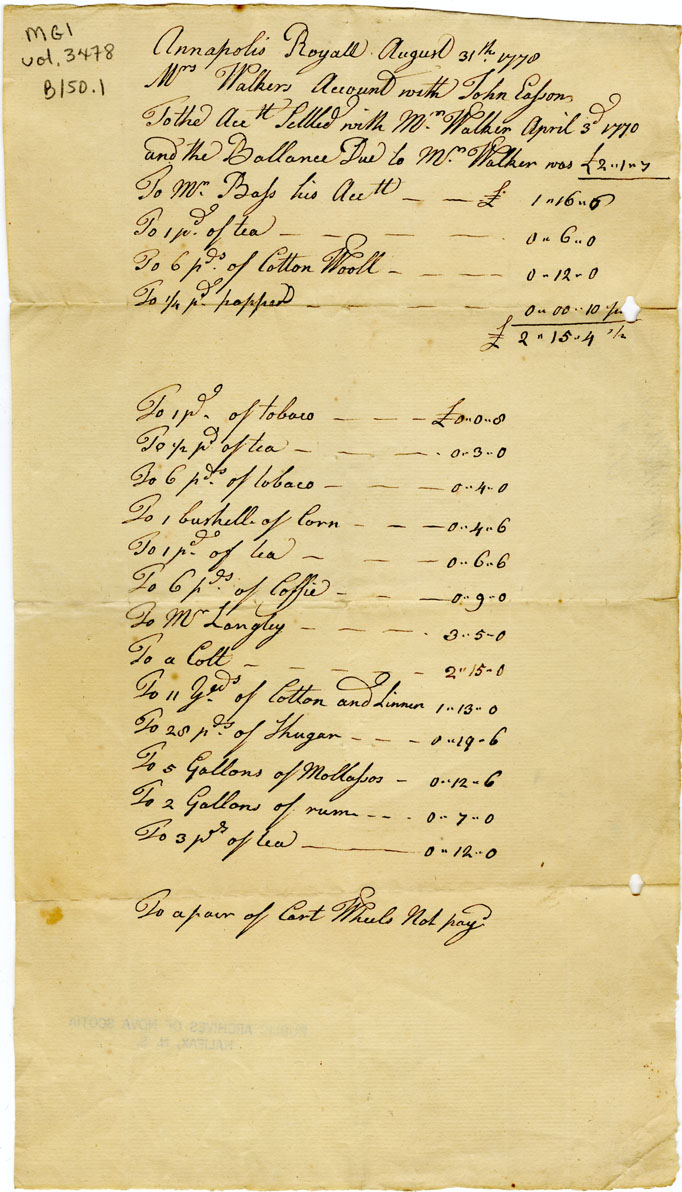 MG1
vol. 3478
B150.1
Annapolis Royall August 31th 1778
Mrs Walkers Account with John Easson
To the Acctt Settled with Mrs Walker April 3d 1770
and the Ballance Due to Mrs Walker was £2"1"7
To Mr Bass his Acctt — — £ 1"16"6
To 1 pd of tea — — — — 0"6"0
To 6 pds of Cotton Wooll — — — 0"12"0
To 1/4 pd papper — — — 0"00"10 1/2
£ 2"15"4 1/2
To 1 pd of tobaco — — — £0"0"8
To 1/2 pd of tea — — — 0"3"0
To 6 pds of tobaco — — — 0"4"0
To 1 bushell of Corn — — — 0"4"6
To 1 pd of tea — — — 0"6"6
To 6 pds of Coffie — — — 0"9"0
To Mr Langley — — — 3"5"0
To a Colt — — — 2"15"0
To 11 Yeds of Cotton and Linnen 1"13"0
To 28 pds of Shugar — — — 0"19"6
To 5 Gallons of Mollassos — 0"12"6
To 2 Gallons of rum — — 0"7"0
To 3 pds of tea — — 0"12"0
To a pair of Cart Wheels Not payd
PUBLIC ARCHIVES OF NOVA SCOTIA
HALIFAX, N. S.